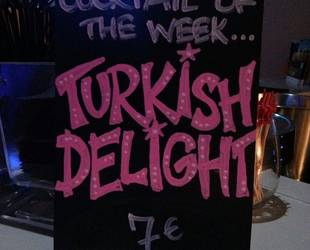 COCKTAIL OF
THE WEEK...
TURKISH
DELIGHT
7€